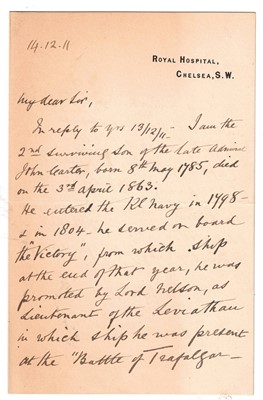 14.12.11
ROYAL HOSPITAL,
CHELSEA, S.W.
My dear Sir,
In reply to yrs 13/12/11 – I am the
2nd surviving son of the late Admiral
John Carter, born 8th May 1785, died
on the 3rd April 1863.
He entered the Rl Navy in 1798 –
& in 1804 – he served on board
the "Victory", from which ship
at the end of that year, he was
promoted by Lord Nelson, as
Lieutenant of the Leviathan
in which ship he was present
at the "Battle of Trafalgar –